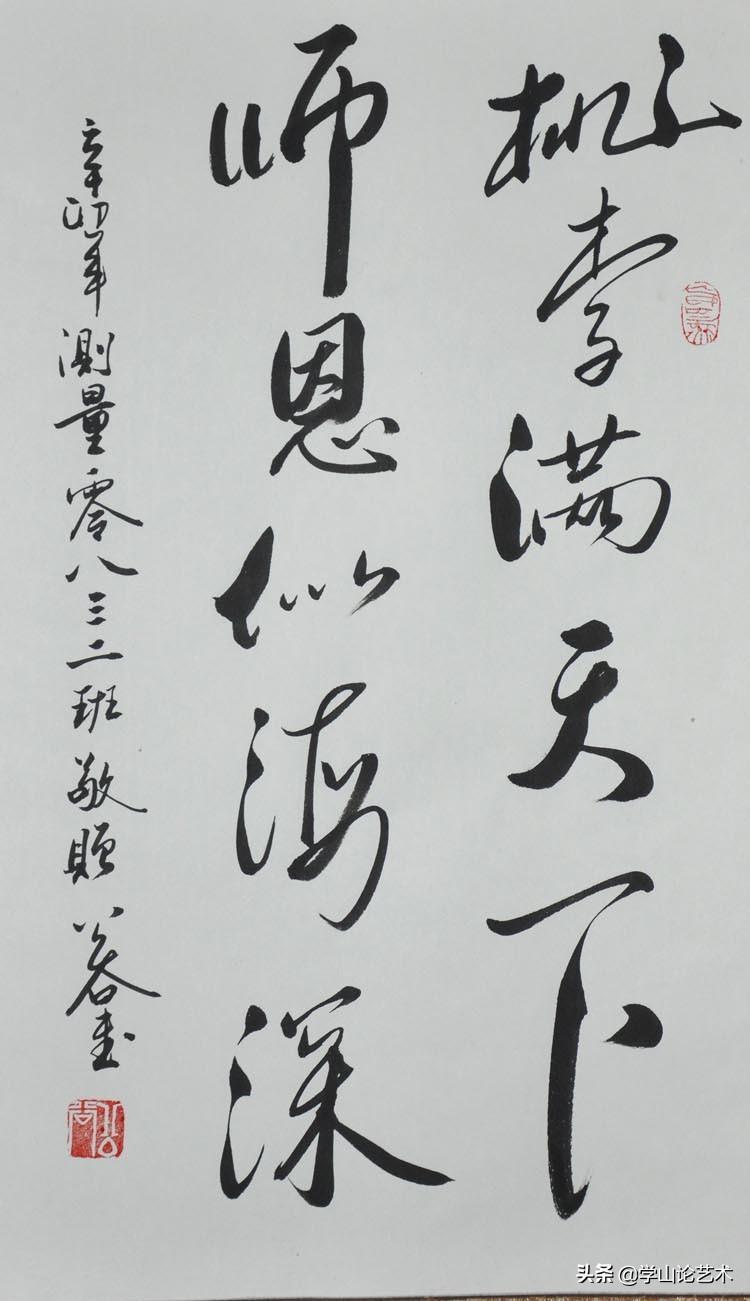 桃李满天下
师恩似海深
辛卯年测量零八三二班敬赠 公谷书
头条 @学山论艺术